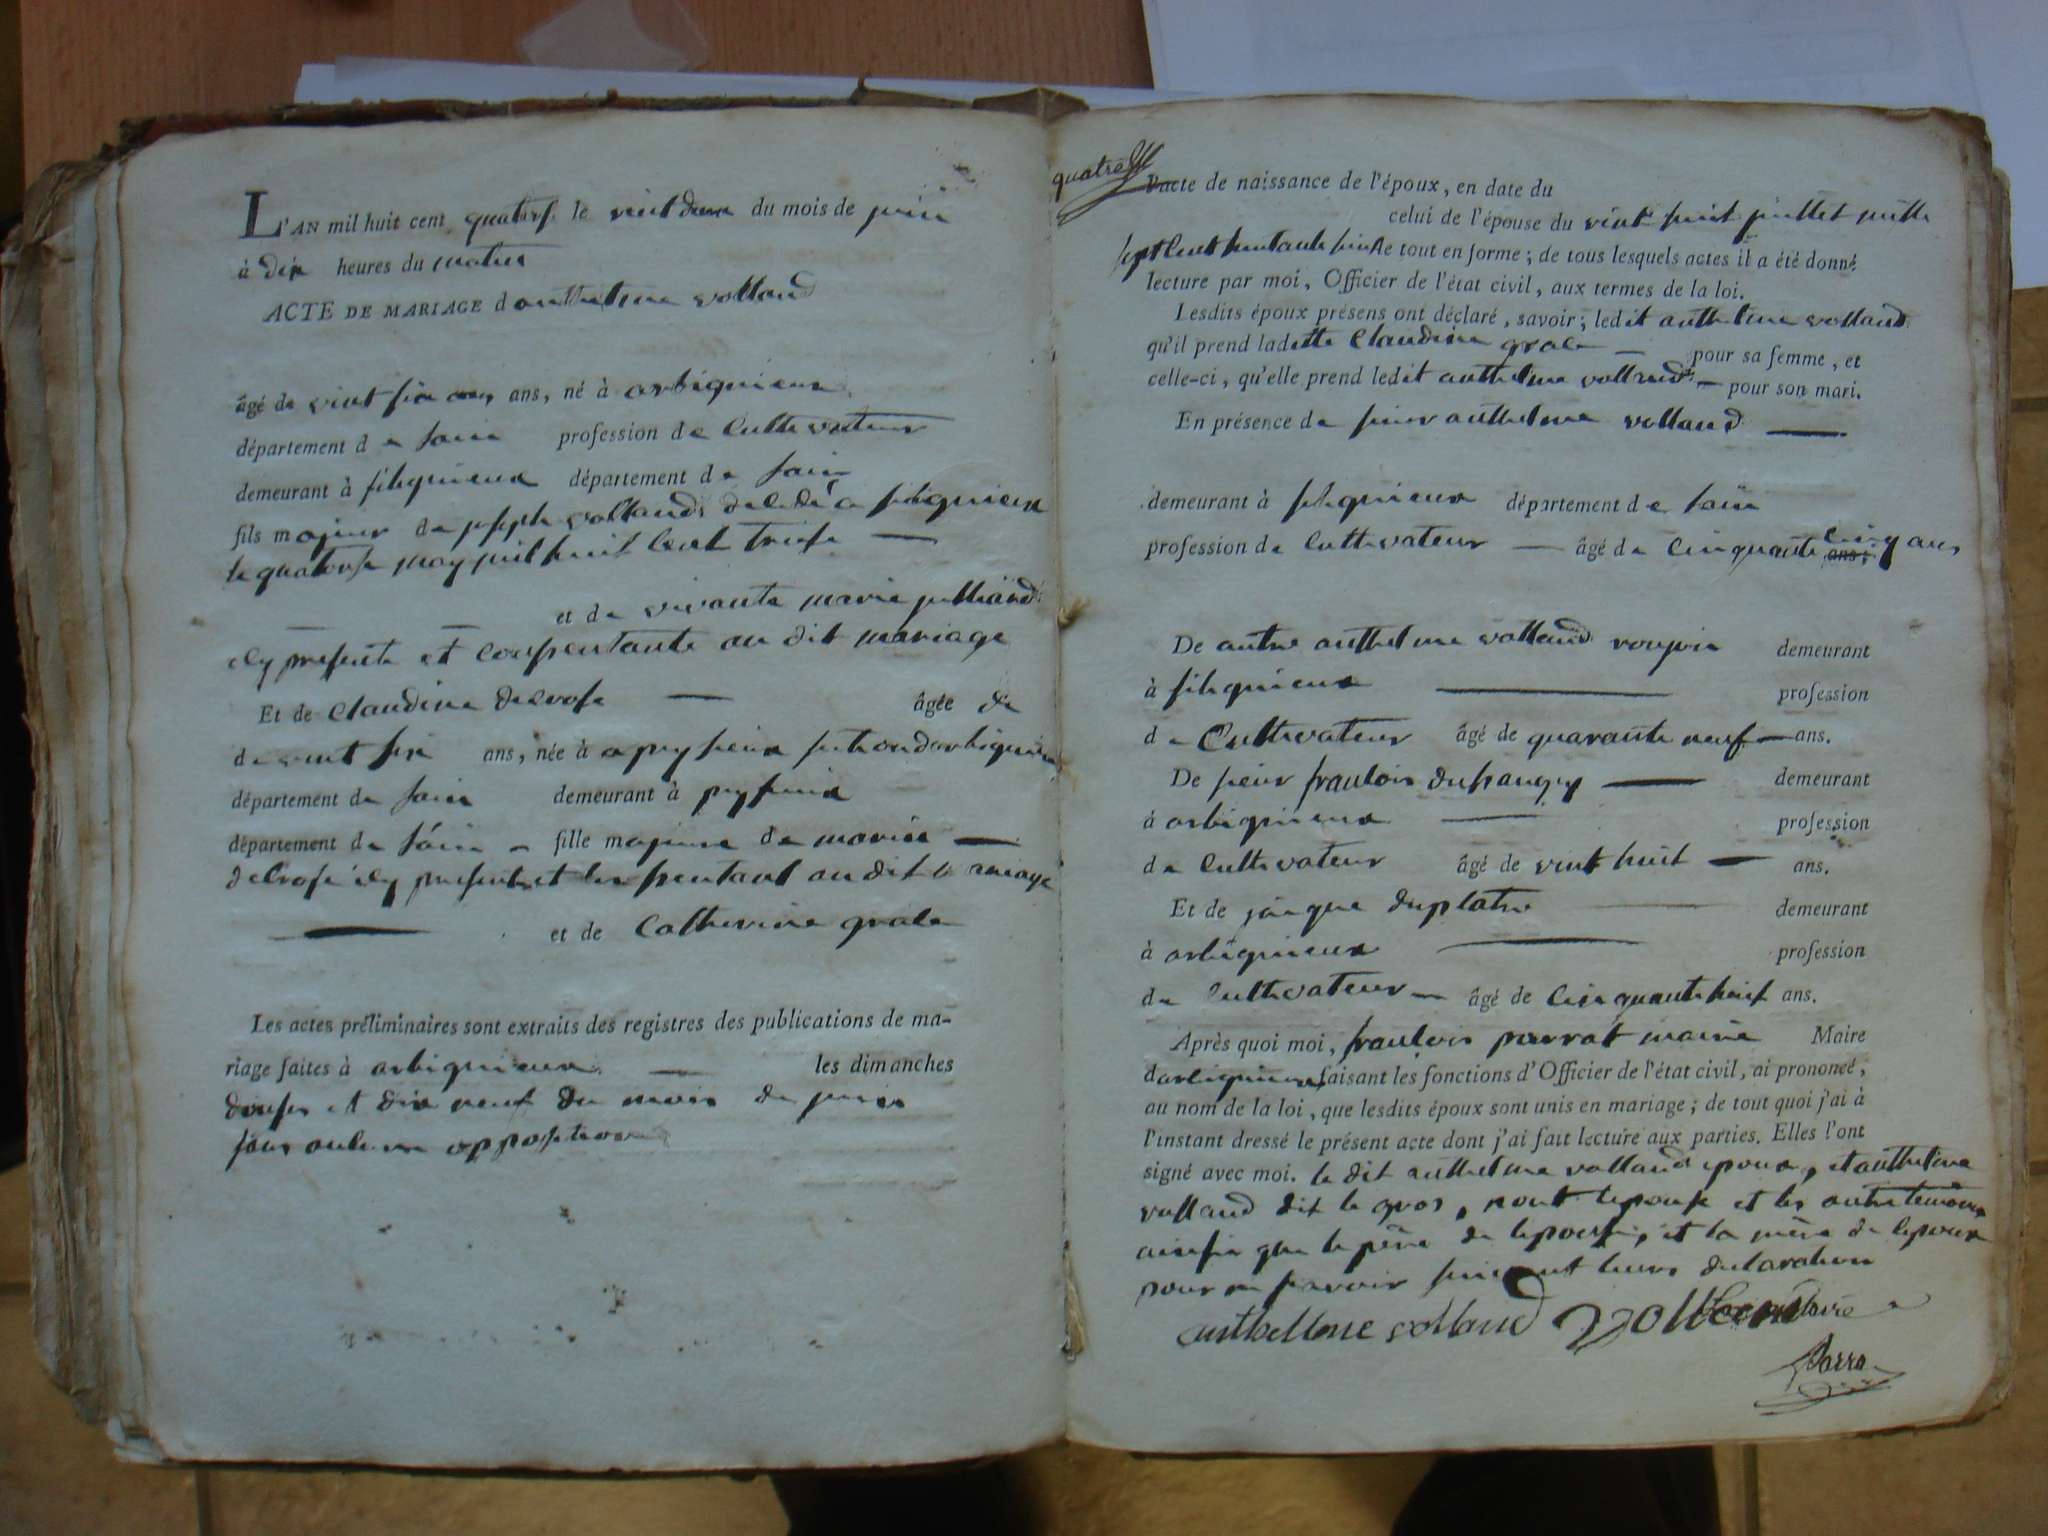 L'AN mil huit cent quatorse le vint deux du mois de juin
à dix heures du matin
ACTE DE MARIAGE d anthelme volland
âgé de vint six ans, né à arbignieux
département de lain profession de Cultivateur
demeurant à filignieux département de lain
fils majeur de joseph volland décédé a filignieux
le quatorse may mil huit Cent treise
et de vivante marie julliand
icy presente et Consentante au dit mariage
Et de Claudine delrose âgée de
de vint six ans, née à a peyzieux
département de lain demeurant à peyzieux
département de lain fille majeure de marie
delrose icy present et Consentant au dit mariage
et de Catherine grale
Les actes préliminaires sont extraits des registres des publications de ma-
riage faites à arbignieux les dimanches
douse et dix neuf du mois de juin
sans aucune opposition
quatre
l'acte de naissance de l'époux, en date du
celui de l'épouse du vint huit juillet mille
sept Cent huitante le tout en forme; de tous lesquels actes il a été donné
lecture par moi, Officier de l'état civil, aux termes de la loi.
Lesdits époux présens ont déclaré, savoir; ledit anthelme volland
qu'il prend ladette Claudine grale pour sa femme, et
celle-ci, qu'elle prend ledit anthelme volland pour son mari.
En présence de sieur anthelme volland
demeurant à filignieux département de lain
profession de Cultivateur âgé de Cinquante Cinq ans
De autre anthelme volland demeurant
à filignieux profession
de Cultivateur âgé de quarante neuf ans.
De sieur francois dufrangey demeurant
à arbignieux profession
de Cultivateur âgé de vint huit ans.
Et de jaique duplatre demeurant
à arbignieux profession
de Cultivateur âgé de Cinquante huit ans.
Après quoi moi, francois parrat maire Maire
darbignieux faisant les fonctions d'Officier de l'état civil, ai prononcé,
au nom de la loi, que lesdits époux sont unis en mariage; de tout quoi j'ai à
l'instant dressé le présent acte dont j'ai fait lecture aux parties. Elles l'ont
signé avec moi. le dit anthelme volland epoux, et anthelme
volland dit le gros, nont lepouse et les autre temoins
ainsin que le père de lepouse, et la mère de lepoux
pour ne savoir suivant leurs declaration
anthelme volland volland maire
parra